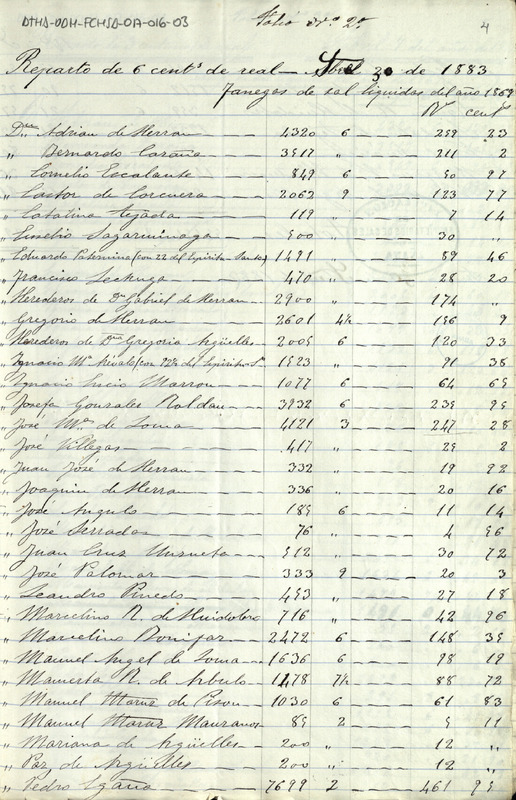 DTHA-DDH-FCHSA-OA-016-03
Folio nº 2º
4
Reparto de 6 centˢ de real — Abril 30 de 1883
Fanegas de sal liquidas del año 1869
Rˢ centˢ
Dⁿ Adrian de Herran — 4320 6 — 259 23
" Bernardo — 3517 " — 211 2
" Cornelio Escalante — 849 6 — 50 97
" Castor de Corcuera — 2062 9 — 123 77
" Catalina Tejada — 119 " — 7 14
" Eusebio Sagarminaga — 500 " — 30 "
" Eduardo Paternina (con 22 del Espiritu Santo) 1491 " — 89 46
" Francisco Lechuga — 470 " — 28 20
" Herederos de Dⁿ Gabriel de Herran — 2900 — 174 "
" Gregorio de Herran — 2601 4½ — 156 9
" Herederos de Dña Gregoria Argüelles — 2005 6 — 120 33
" Ignacio Mª (con 72½ del Espiritu Sº 1523 " — 91 38
" Ignacio Lucio Marron — 1077 6 — 64 65
" Josefa Gonzales Roldan — 3932 6 — 235 95
" José Mª de Soma — 4121 3 — 247 28
" José Villegas — 417 — 25 2
" Juan José de Herran — 332 " — 19 92
" Joaquin de Herran — 336 " — 20 16
" José Angulo — 185 6 — 11 14
" José Serrador — 76 " — 4 56
" Juan Cruz Unzueta — 512 " — 30 72
" José Palomar — 333 9 — 20 3
" Leandro Pinedo — 453 " — 27 18
" Marcelino R. de Huidobro — 716 " — 42 96
" Marcelino Bonifaz — 2472 6 — 148 35
" Manuel Angel de Soma — 1636 6 — 98 19
" Mamerta R. de Arbulo — 1478 7½ — 88 72
" Manuel Maruz de Pison — 1030 6 — 61 83
" Manuel Maruz Manzanos — 85 2 — 5 11
" Mariana de Argüelles — 200 " — 12 "
" Paz de Argüelles — 200 " — 12 "
" Pedro Egaña — 7699 2 — 461 95